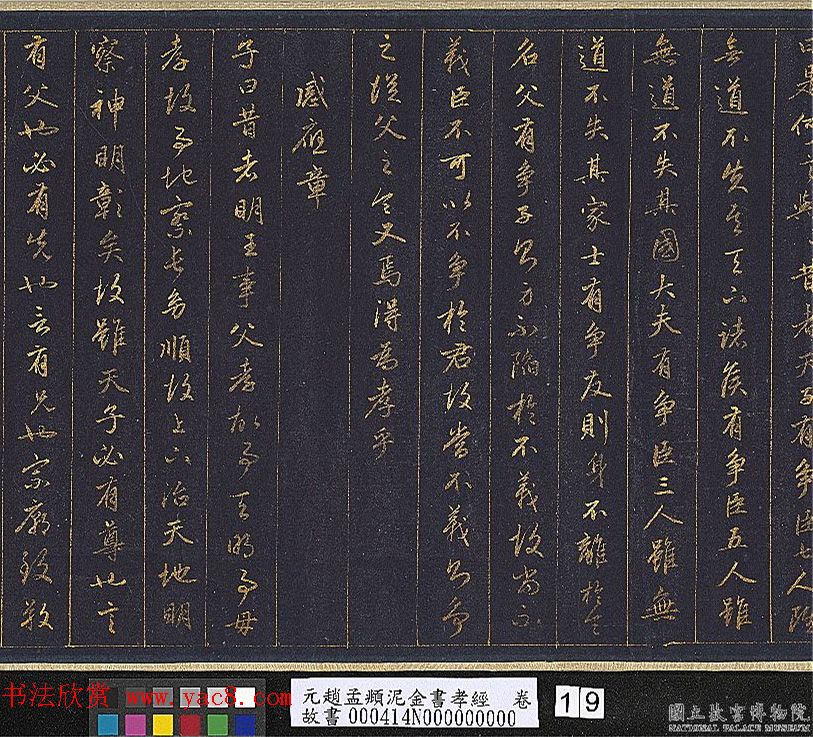 曰是何言與〻昔者天子有爭臣七人雖
無道不失其天下諸侯有爭臣五人雖
無道不失其國大夫有爭臣三人雖無
道不失其家士有爭友則身不離於令
名父有爭子則身不陷於不義故當不
義臣不可以不爭於君故當不義則爭
之從父之令又焉得為孝乎
感應章
子曰昔者明王事父孝故事天明事母
孝故事地察長幼順故上下治天地明
察神明彰矣故雖天子必有尊也言
有父也必有先也言有兄也宗廟致敬
书法欣赏 www.yac8.com
元趙孟頫泥金書孝經 卷
故書000414N000000000
19
國立故宮博物院
NATIONAL PALACE MUSEUM